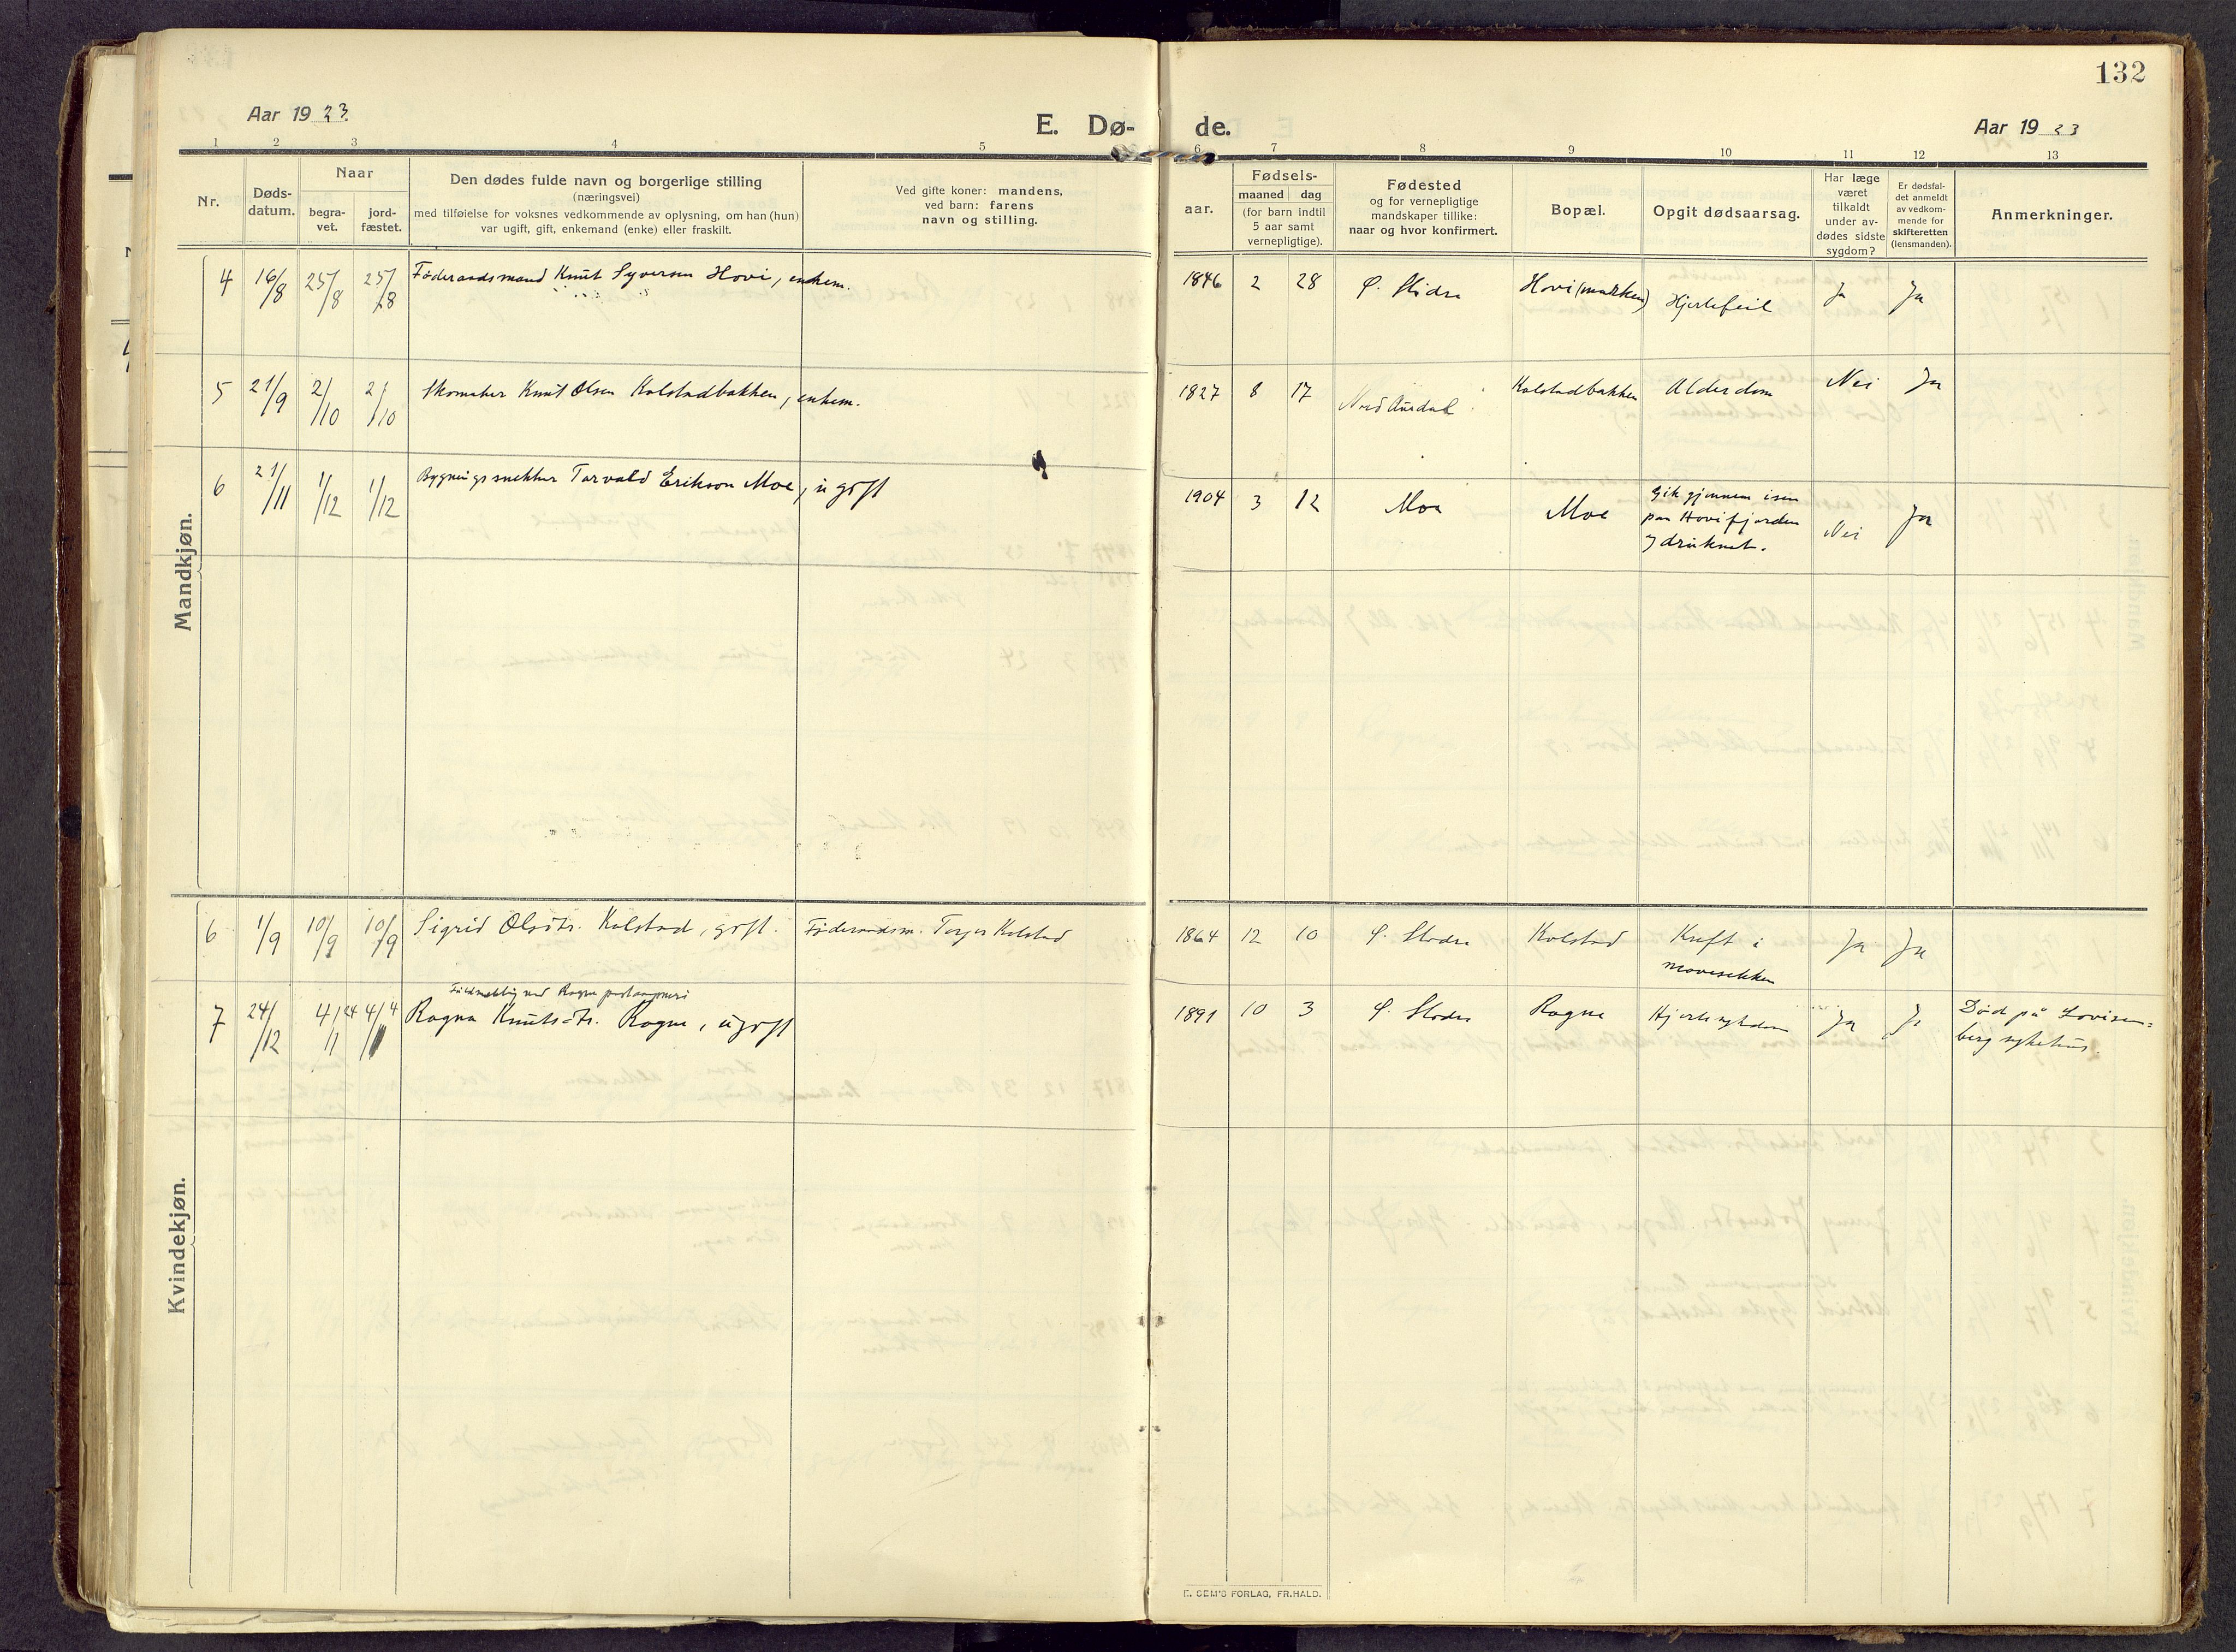 132
Aar 19 23.
E. Dø-
de.
Aar 19 23
1 2 3 4 5 6 7 8 9 10 11 12 13
Nr.
Døds-
datum.
Naar
begra-
vet.
jord-
fæstet.
Den dødes fulde navn og borgerlige stilling
(næringsvei)
med tilføielse for voksnes vedkommende av oplysning, om han (hun)
var ugift, gift, enkemand (enke) eller fraskilt.
Ved gifte koner: mandens,
ved barn: farens
navn og stilling.
aar.
Fødsels-
maaned dag
(for barn indtil
5 aar samt
vernepligtige).
Fødested
og for vernepligtige
mandskaper tillike:
naar og hvor konfirmert.
Bopæl.
Opgit dødsaarsag.
Har læge
været
tilkaldt
under av-
dødes sidste
sygdom?
Er dødsfal-
det anmeldt
av vedkom-
mende for
skifteretten
(lensmanden).
Anmerkninger.
Mandkjøn.
4 16/8 25/8 25/8 Føderaadsmand Knut Syversen Hovi, enkem. 1846 2 28 Ø. Slidre Hovi (marken) Hjertefeil Ja Ja
5 21/9 2/10 2/10 Skomaker Knut Olsen Kolstadbakken, enkem. 1827 8 17 Nord Aurdal Kolstadbakken Alderdom Nei Ja
6 21/11 1/12 1/12 Bygningssnekker Torvald Erikson Moe, ugift 1904 3 12 Moe Moe Gik gjennem isen
paa Hovifjorden
og druknet. Nei Ja
Kvindekjøn.
6 1/9 10/9 10/9 Sigrid Olsdtr. Kolstad, gift. Føderaadsm. Torger Kolstad 1864 12 10 Ø. Slidre Kolstad Kreft i
mavesekken Ja Ja
Rogne
7 24/12 4/1 24 4/1 Ragna Knutsdtr. Rogne, ugift 1891 10 3 Ø. Slidre Rogne Hjertesykdom Ja Ja Død på Lovisen-
berg sykehus.
E. SEM'S FORLAG, FR.HALD.